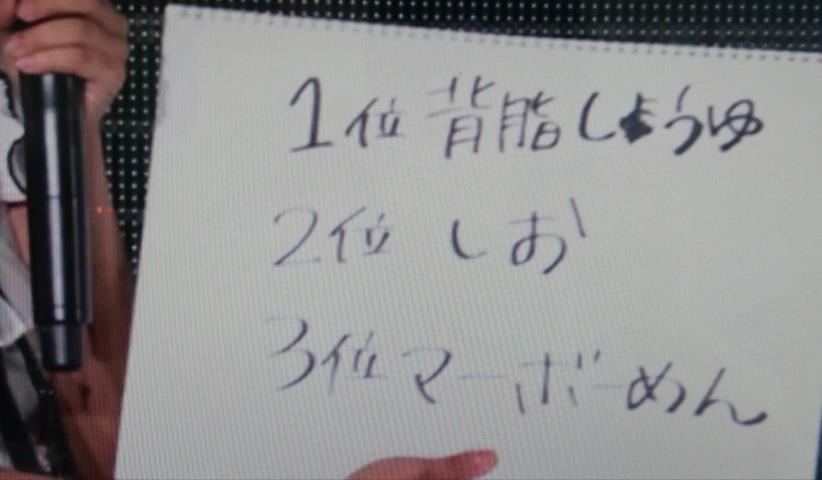 1位 背脂しょうゆ
2位 しお
3位 マーボーめん